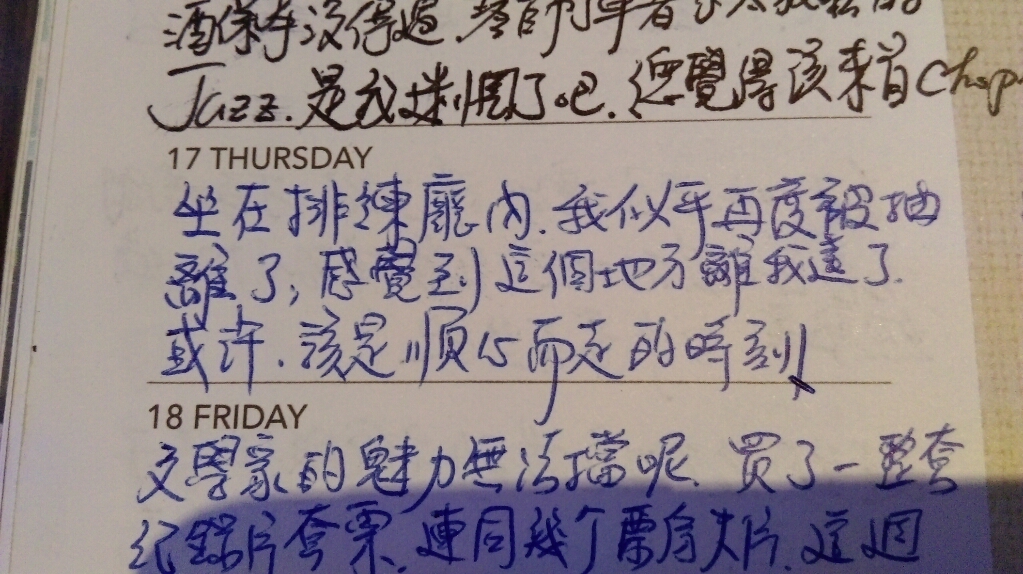 酒保
Jazz.是我迷惘了吧.總覺得該來自Chop
17 THURSDAY
坐在排練廳內.我似乎再度被抽
離了,感覺到這個地方離我遠了.
或許.該是順心而走的時刻
18 FRIDAY
文學家的魅力無法擋呢.買了一整套
紀錄片套票.連同幾个票房大片.這週